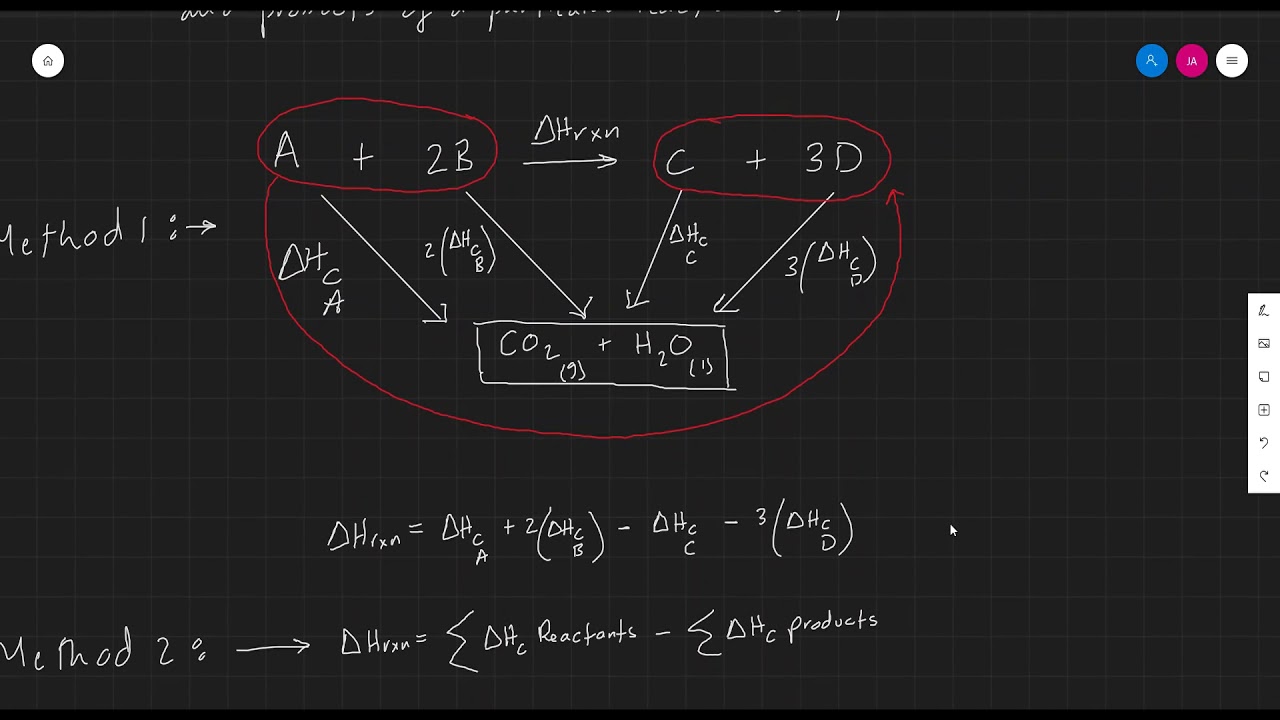 and products of a particular
JA
A + 2B ΔHrxn → C + 3D
Method 1: →
ΔHc A 2(ΔHc B) ΔHc C 3(ΔHc D)
CO2 (g) + H2O (l)
ΔHrxn = ΔHc A + 2(ΔHc B) - ΔHc C - 3(ΔHc D)
Method 2: → ΔHrxn = Σ ΔHc Reactants - Σ ΔHc products